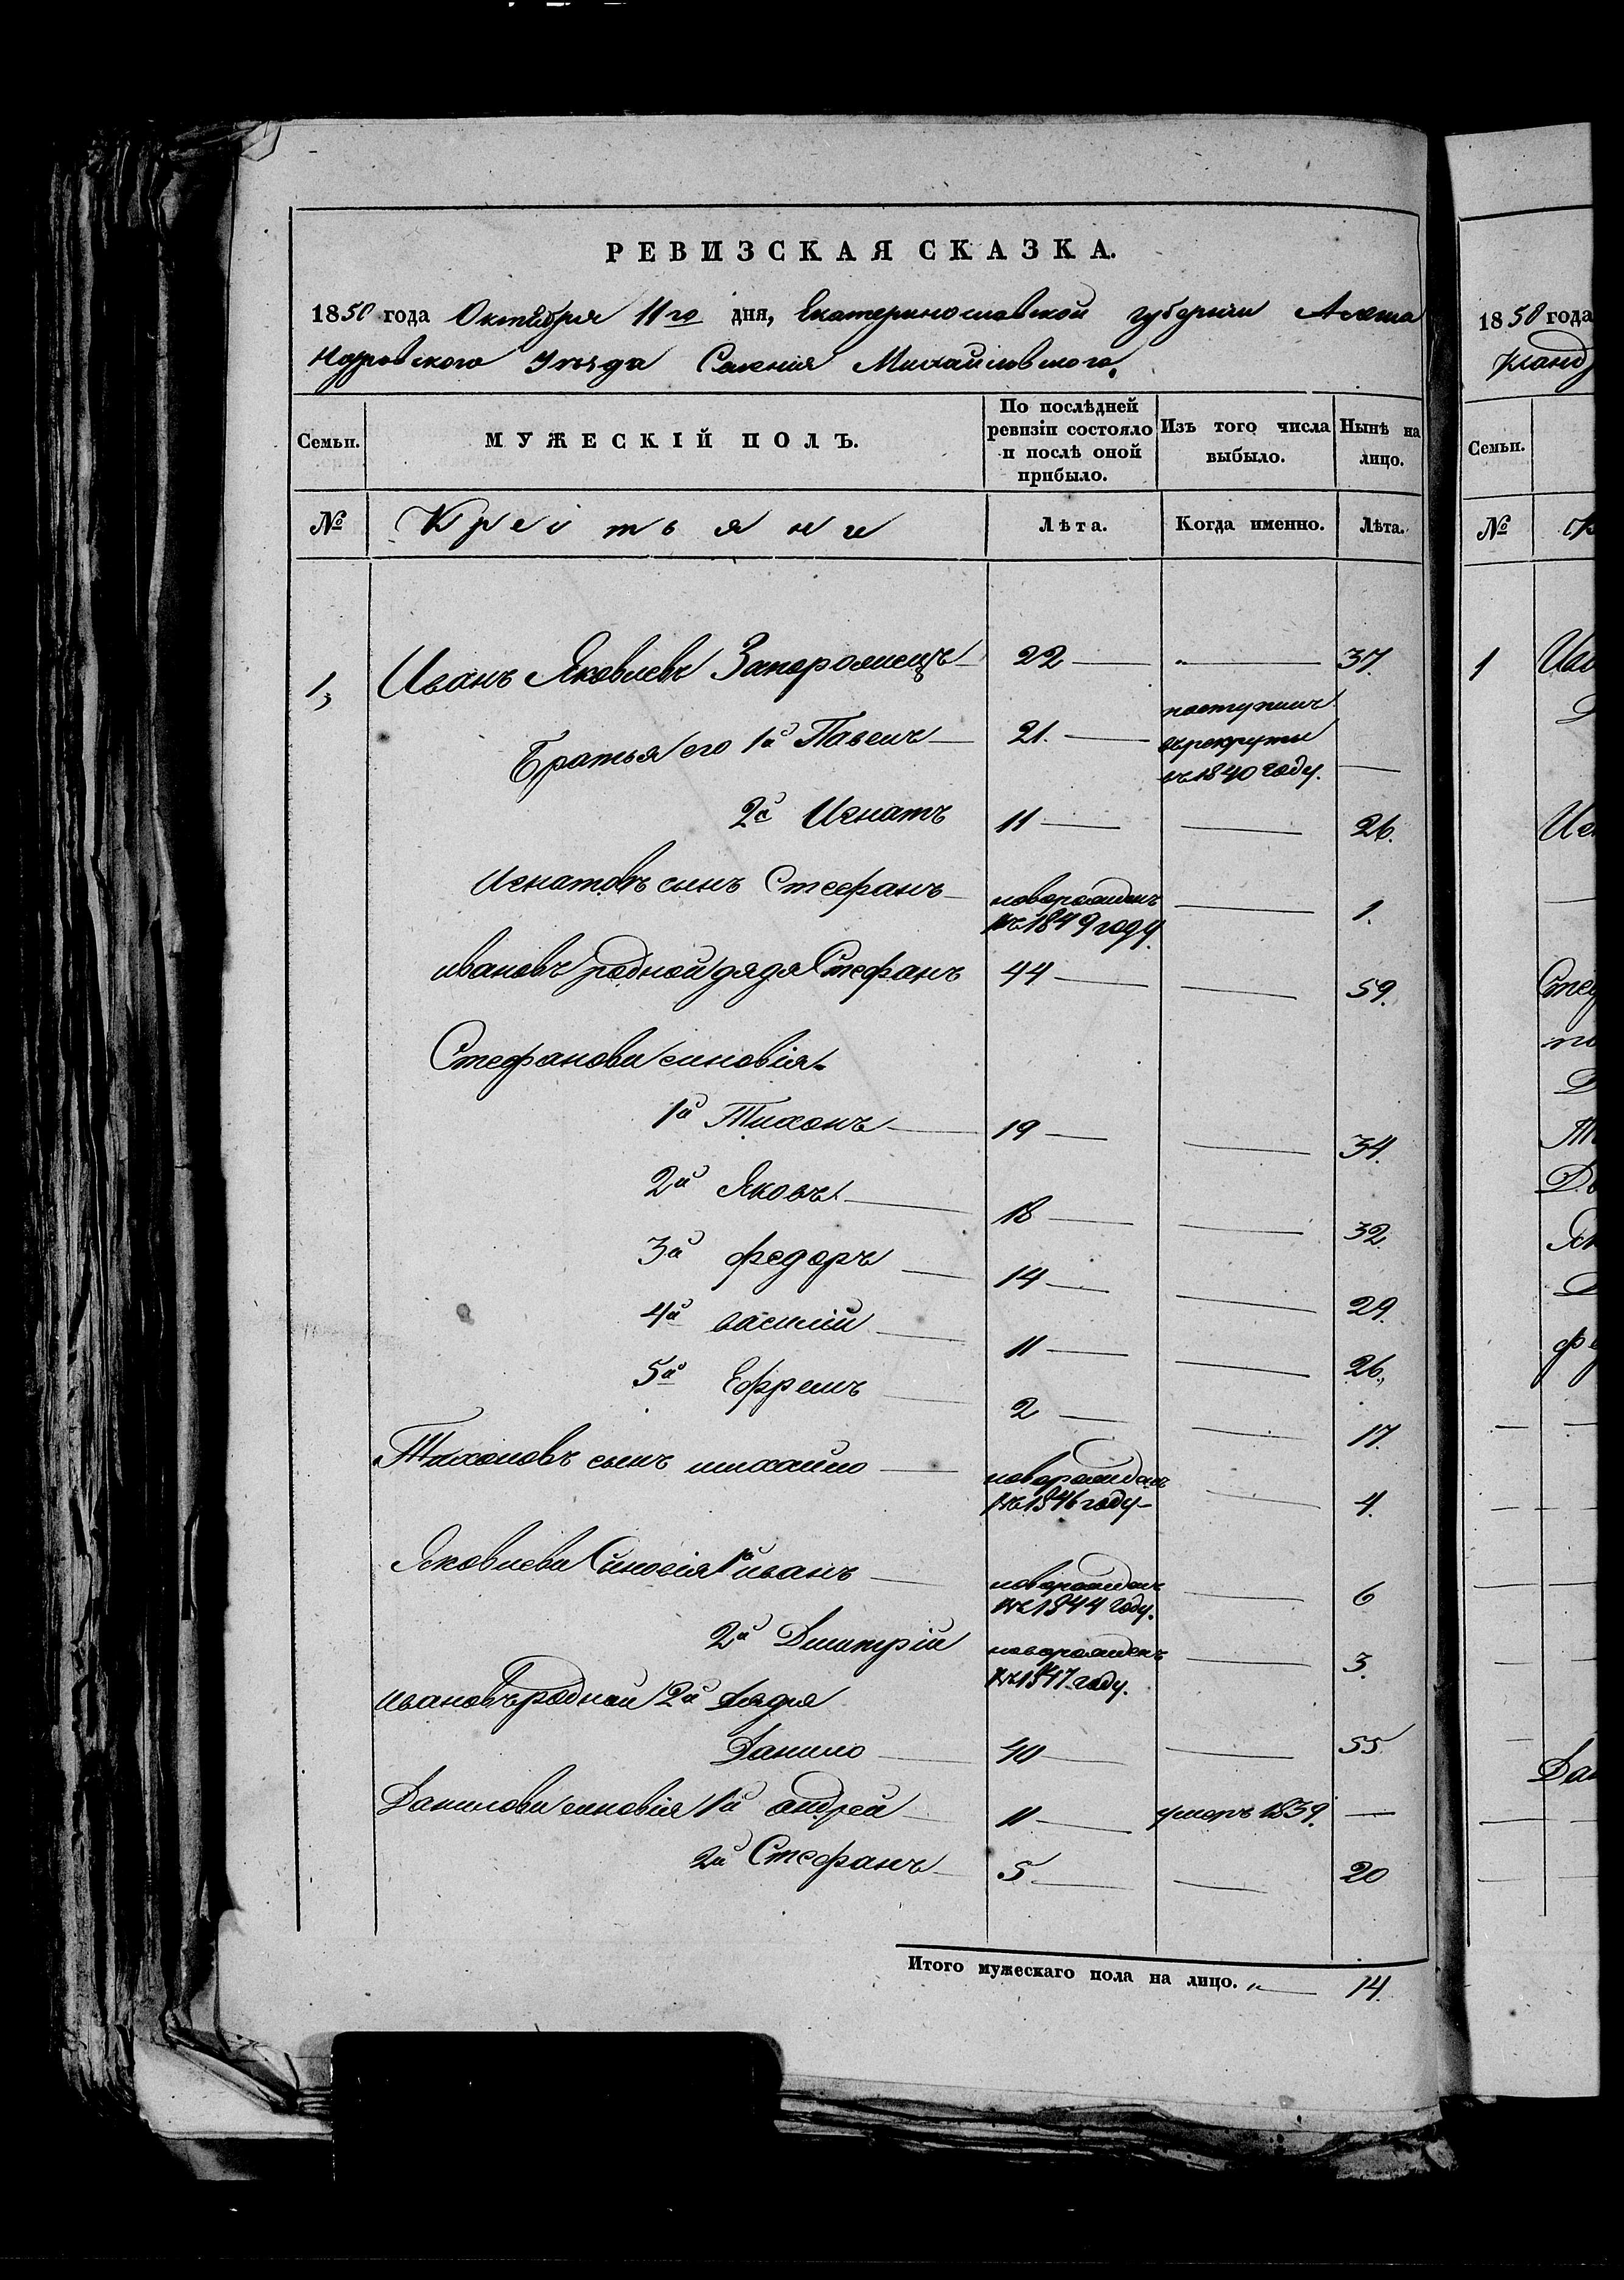 РЕВИЗСКАЯ СКАЗКА.
1850 года Октября 11го дня, Екатеринославской губернии Алекса
ндровского Уезда Селения Михайловского.
Семьи.
МУЖЕСКІЙ ПОЛЪ.
По послѣдней ревизіи состояло и послѣ оной прибыло.
Изъ того числа выбыло.
Нынѣ на лицо.
№ Крестьяне Лѣта. Когда именно. Лѣта.
1, Иванъ Яковлевъ Запорожецъ 22 " 37.
Братья его 1й Павелъ 21. поступилъ
въ рекруты
въ 1840 году.
2й Игнатъ 11 26.
Игнатовъ сынъ Стефанъ новорожденъ
въ 1849 году. 1.
Ивановъ родной дядя Стефанъ 44 59.
Стефанови синовія
1й Тихонъ 19 34.
2й Яковъ 18 32.
3й федоръ 14 29.
4й василий 11 26.
5й Ефремъ 2 17.
Тихоновъ сынъ михайло новорожденъ
въ 1846 году 4.
Яковлеви Синовія 1й иванъ новорожденъ
въ 1844 году. 6
2й Дмитрій новорожденъ
въ 1847 году. 3.
Ивановъ родной 2й Дядя
Данило 40 55
Данилови синовія 1й андрей 11 умеръ 1839.
2й Стефанъ 5 20
Итого мужескаго пола на лицо. " 14.
1850 года
Семьи.
№
1